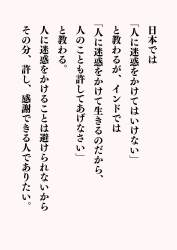 日本では
「人に迷惑をかけてはいけない」
と教わるが、インドでは
「人に迷惑をかけて生きるのだから、
人のことも許してあげなさい」
と教わる。
人に迷惑をかけることは避けられないから
その分、許し、感謝できる人でありたい。